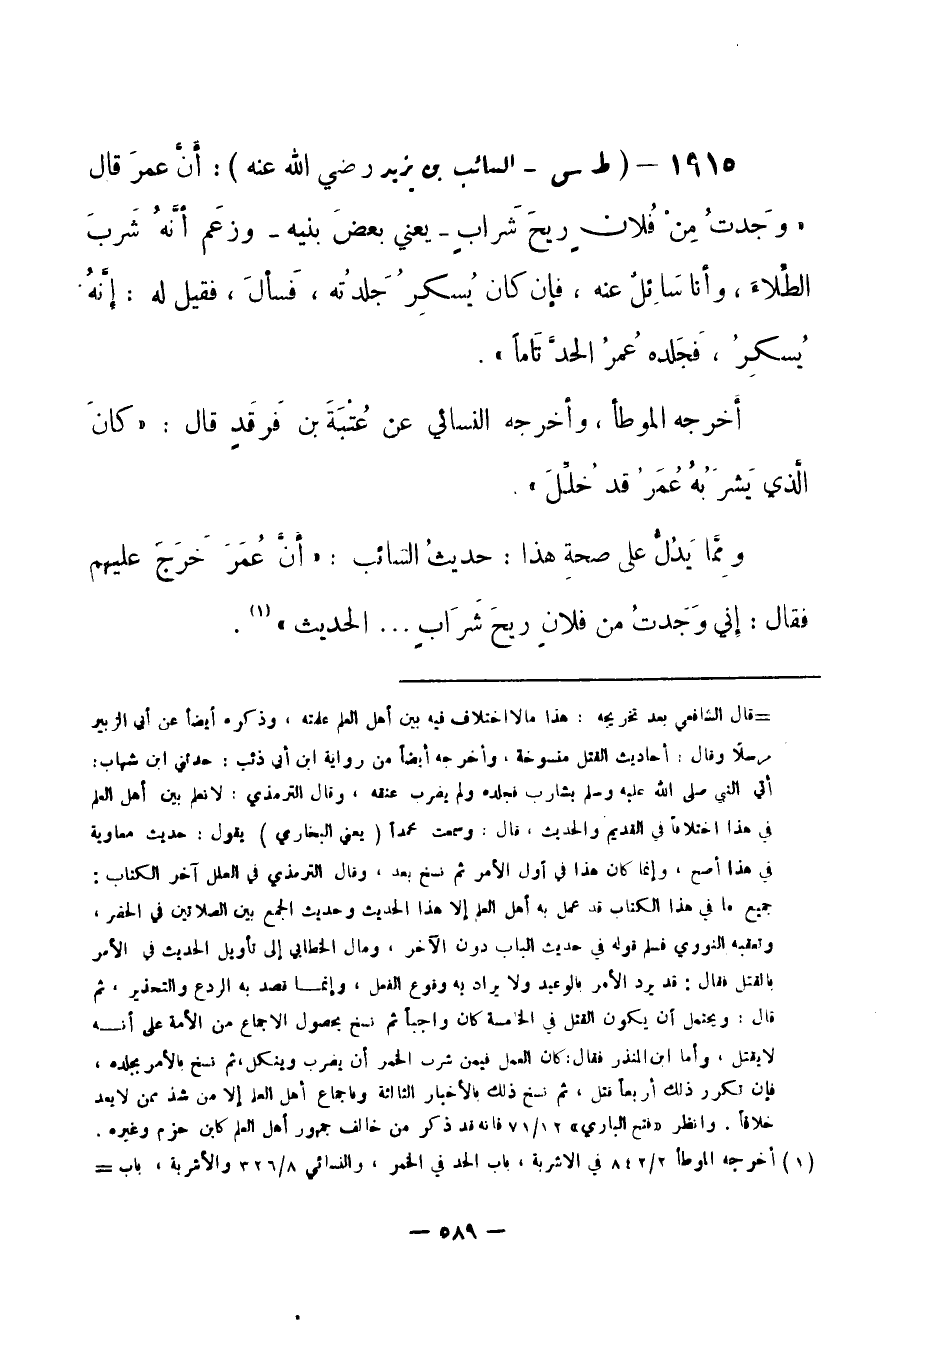 ١٩١٥ – ( ط س - السائب بن يزيد رضي الله عنه ) : أَنَّ عمرَ قال
« وَجَدتُ مِنْ فُلانٍ رِيحَ شَرابٍ - يعني بعضَ بنيه - وزعَم أنَّهُ شَربَ
الطِّلاءَ ، وأنا سَائِلٌ عنه ، فإن كان يُسكِرُ جَلدتُه ، فَسألَ ، فقيل له : إنَّهُ
يُسكِرُ ، فَجَلَده عُمرُ الحدَّ تَاماً » .
أخرجه الموطأ ، وأخرجه النسائي عن عُتْبَةَ بن فَرقَدٍ قال : « كانَ
الَّذي يَشرَبُهُ عُمَرُ قد خُلِّلَ » .
ومِمَّا يَدُلُّ على صحةِ هذا : حديثُ السَّائب : « أنَّ عُمَرَ خَرَجَ عليهم
فقال : إني وَجَدتُ من فلانٍ ريحَ شَرَابٍ ... الحديث » (١) .
= قال الشافعي بعد تخريجه : هذا مالا اختلاف فيه بين أهل العلم علمته ، وذكره أيضاً عن أبي الزبير
مرسلاً وقال : أحاديث القتل منسوخة ، وأخرجه أيضاً من رواية ابن أبي ذئب : حدثني ابن شهاب :
أتي النبي صلى الله عليه وسلم بشارب فجلده ولم يضرب عنقه ، وقال الترمذي : لانعلم بين أهل العلم
في هذا اختلافاً في القديم والحديث ، قال : وسمعت محمداً ( يعني البخاري ) يقول : حديث معاوية
في هذا أصح ، وإنما كان هذا في أول الأمر ثم نسخ بعد ، وقال الترمذي في العلل آخر الكتاب :
جميع ما في هذا الكتاب قد عمل به أهل العلم إلا هذا الحديث وحديث الجمع بين الصلاتين في الحضر ،
وتعقبه النووي فسلم قوله في حديث الباب دون الآخر ، ومال الخطابي إلى تأويل الحديث في الأمر
بالقتل فقال : قد يرد الأمر بالوعيد ولا يراد به وقوع الفعل ، وإنمـا قصد به الردع والتحذير ، ثم
قال : ويحتمل أن يكون القتل في الخامسة كان واجباً ثم نسخ بحصول الاجماع من الأمة على أنـه
لايقتل ، وأما ابن المنذر فقال : كان العمل فيمن شرب الخمر أن يضرب وينكل ، ثم نسخ بالأمر بجلده ،
فإن تكرر ذلك أربعاً قتل ، ثم نسخ ذلك بالأخبار الثابتة وباجماع أهل العلم إلا من شذ ممن لايعد
خلافاً . وانظر «فتح الباري» ٧١/١٢ فانه قد ذكر من خالف جمهور أهل العلم كابن حزم وغيره .
(١) أخرجه الموطأ ٨٤٢/٢ في الاشربة ، باب الحد في الخمر ، والنسائي ٣٢٦/٨ والأشربة ، باب =
– ٥٨٩ –